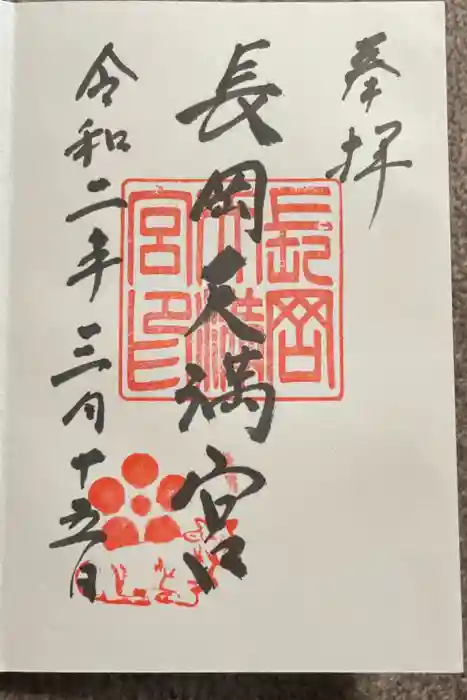 奉拝
長岡天満宮
長岡天満宮印
令和二年三月十五日